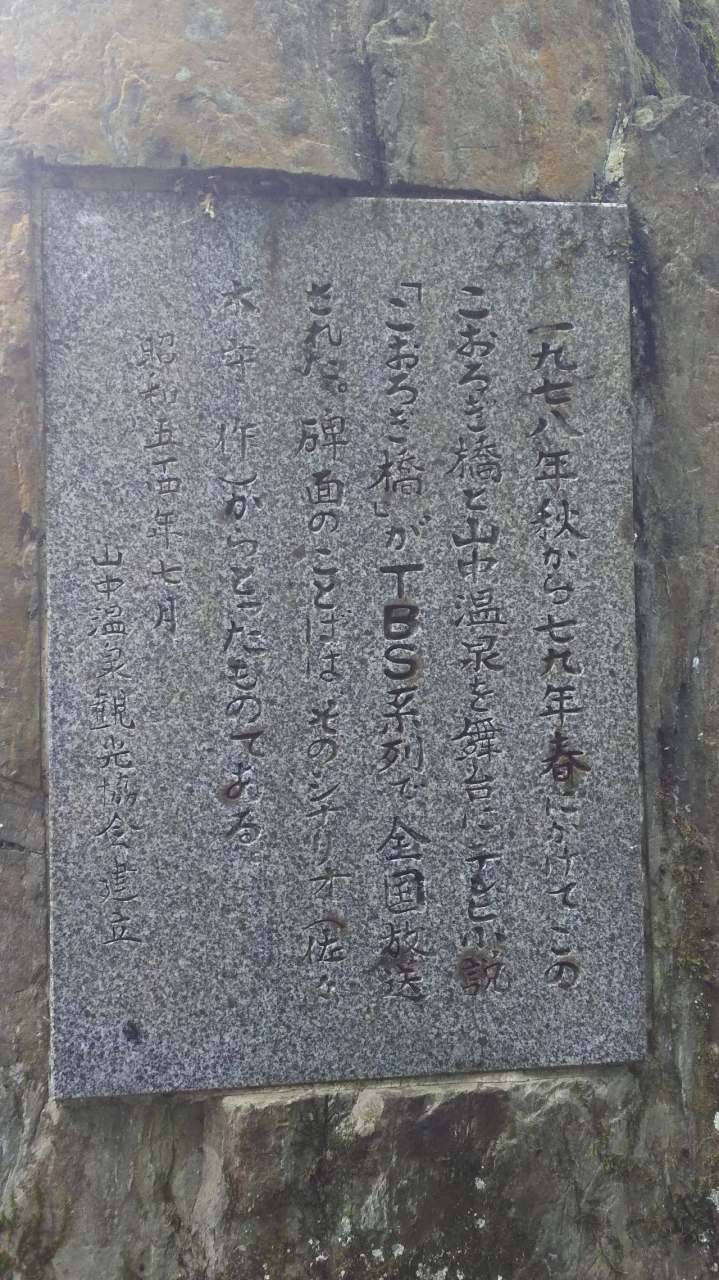 一九七八年秋から七九年春にかけてこの
こおろぎ橋と山中温泉を舞台にテレビ小説
「こおろぎ橋」がTBS系列で全国放送
された。碑面のことばは そのシナリオ(佐々
木守 作)からとったものである。
昭和五十四年七月
山中温泉観光協会建立